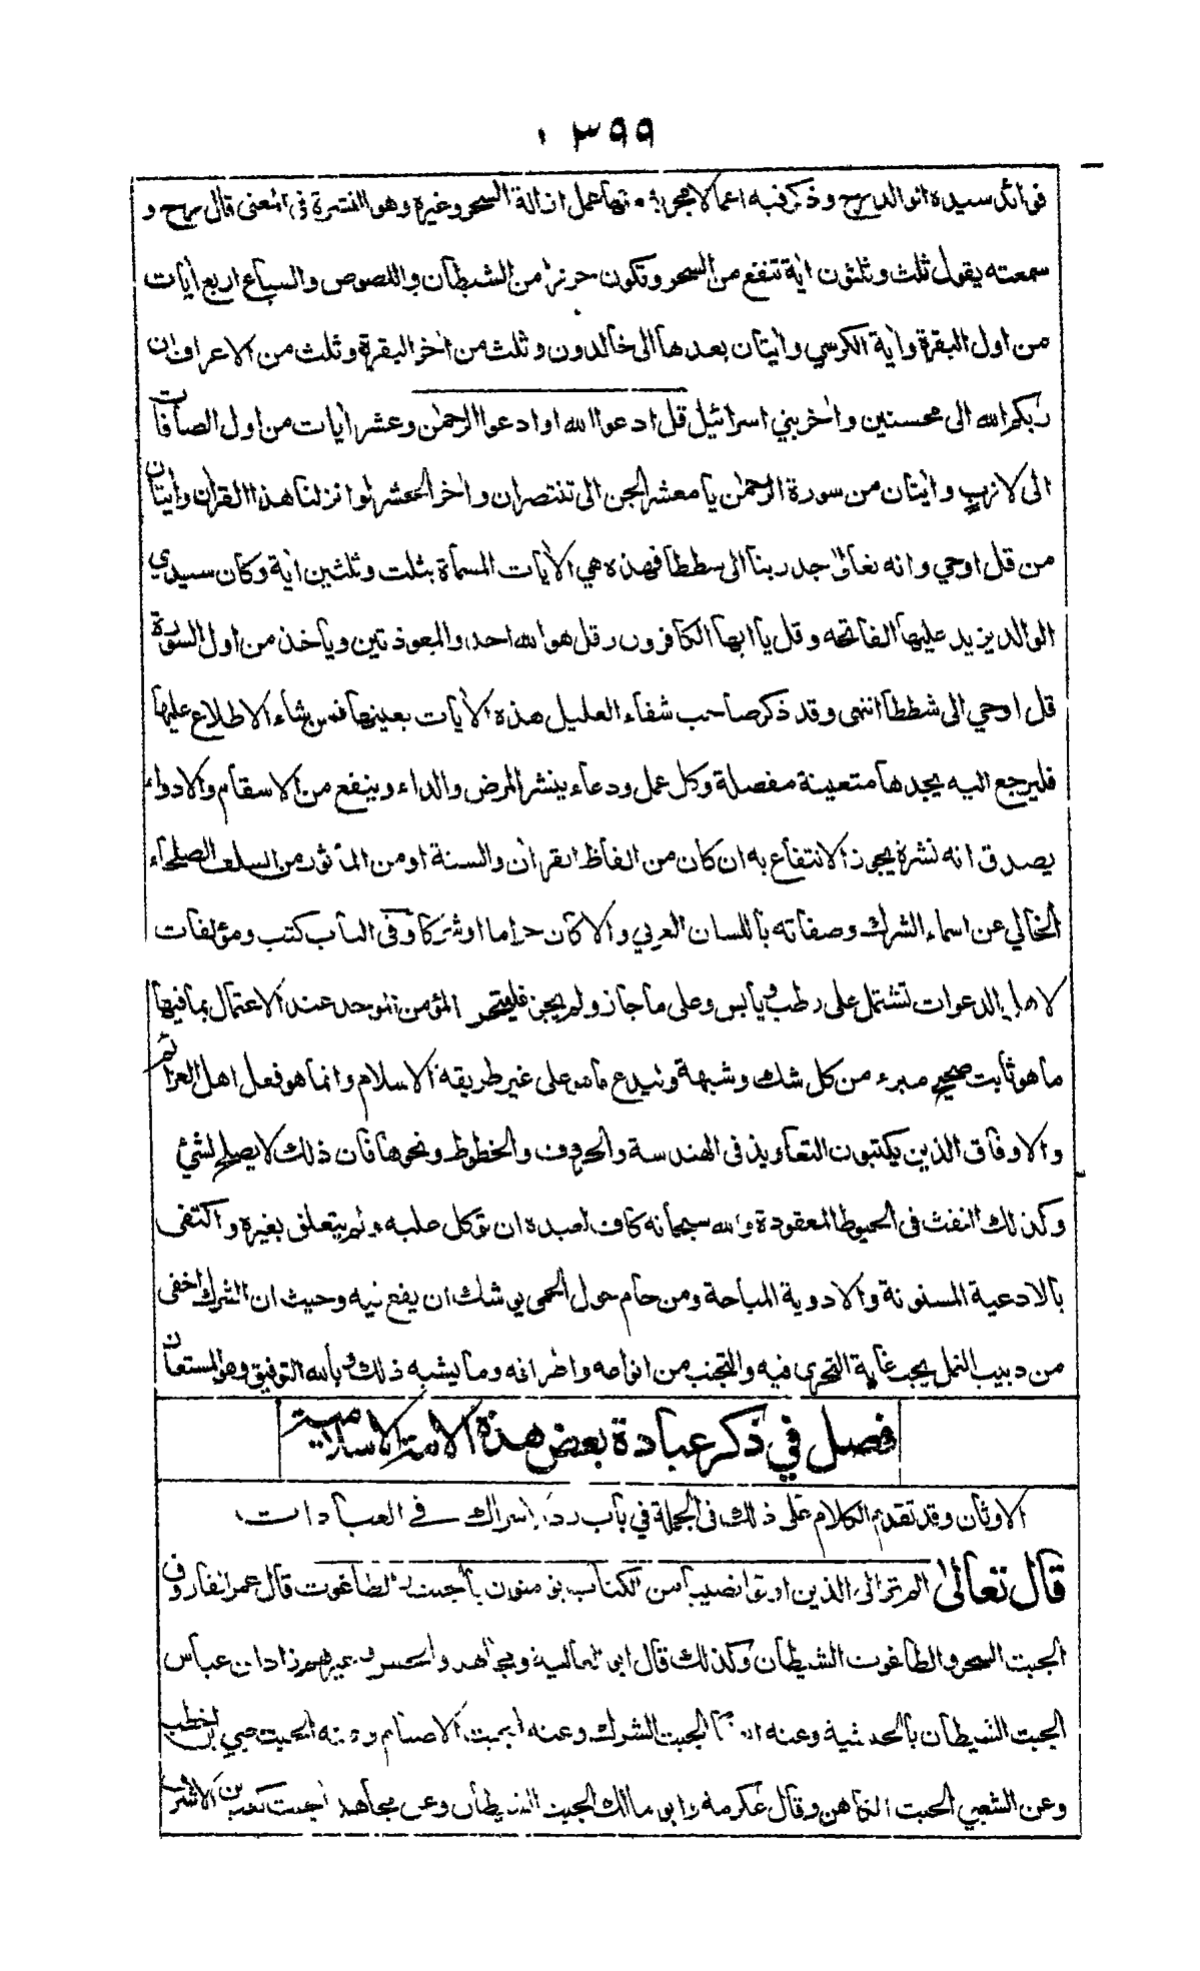 ٣٩٩
فوائد سيده الوالد رح وذكر فيه اعمالا مجربة منها عمل ازالة السحر وغيره وهو النشرة في المعنى قال رح و
سمعته يقول ثلث وثلثون اية تنفع من السحر وتكون حرزا من الشيطان واللصوص والسباع اربع ايات
من اول البقرة واية الكرسي وايتان بعدها الى خالدون وثلث من اخر البقرة وثلث من الاعراف ان
ربكم الله الى محسنين واخر بني اسرائيل قل ادعوا الله او ادعوا الرحمن وعشر ايات من اول الصافات
الى لازب وايتان من سورة الرحمن يا معشر الجن الى تنتصران واخر الحشر لو انزلنا هذا القران وايتان
من قل اوحي وانه تعالى جد ربنا الى شططا فهذه هي الايات المسماة بثلث وثلثين اية وكان سيدي
الوالد يزيد عليها الفاتحه وقل يا ايها الكافرون وقل هو الله احد والمعوذتين وياخذ من اول السورة
قل اوحي الى شططا انتهى وقد ذكر صاحب شفاء العليل هذه الايات بعينها فمن شاء الاطلاع عليها
فليرجع اليه يجدها متعينة مفصلة وكل عمل ودعاء ينشر المرض والداء وينفع من الاسقام والادواء
يصدق انه نشرة يجوز الانتفاع به ان كان من الفاظ القران والسنة او من الماثور من السلف الصلحاء
الخالي عن اسماء الشرك وصفاته باللسان العربي والا كان حراما او شركا وفي الباب كتب ومؤلفات
لاهل الدعوات تشتمل على رطب ويابس وعلى ما جاز ولم يجز فليتحر المؤمن الموحد عند الاعتمال بما فيها
ما هو ثابت صحيح مبرء من كل شك وشبهة وليدع ما هو على غير طريقة الاسلام وانما هو فعل اهل العزائم
والاوفاق الذين يكتبون التعاويذ في الهندسة والحروف والخطوط ونحوها فان ذلك لا يصلح لشئ
وكذلك النفث في الخيوط المعقودة والله سبحانه كاف لعبده ان توكل عليه ولم يتعلق بغيره واكتفى
بالادعية المسنونة والادوية المباحة ومن حام حول الحمى يوشك ان يقع فيه وحيث ان الشرك اخفى
من دبيب النمل يجب غاية التحري فيه والتجنب من انواعه واطرافه وما يشبه ذلك وبالله التوفيق وهو المستعان
فصل في ذكر عبادة بعض هذه الامة الاسلامية
الاوثان وقد تقدم الكلام على ذلك في الجملة في باب رد اشراك في العبادات
قال تعالى الم تر الى الذين اوتوا نصيبا من الكتاب يؤمنون بالجبت والطاغوت قال عمر الفاروق
الجبت السحر والطاغوت الشيطان وكذلك قال ابو العالية ومجاهد والحسن وغيرهم زاد ابن عباس
الجبت الشيطان بالحبشية وعنه الجبت الشرك وعنه الجبت الاصنام وعنه الجبت حيي بن اخطب
وعن الشعبي الجبت الكاهن وقال عكرمه وابو مالك الجبت الشيطان وعن مجاهد الجبت كعب بن الاشرف